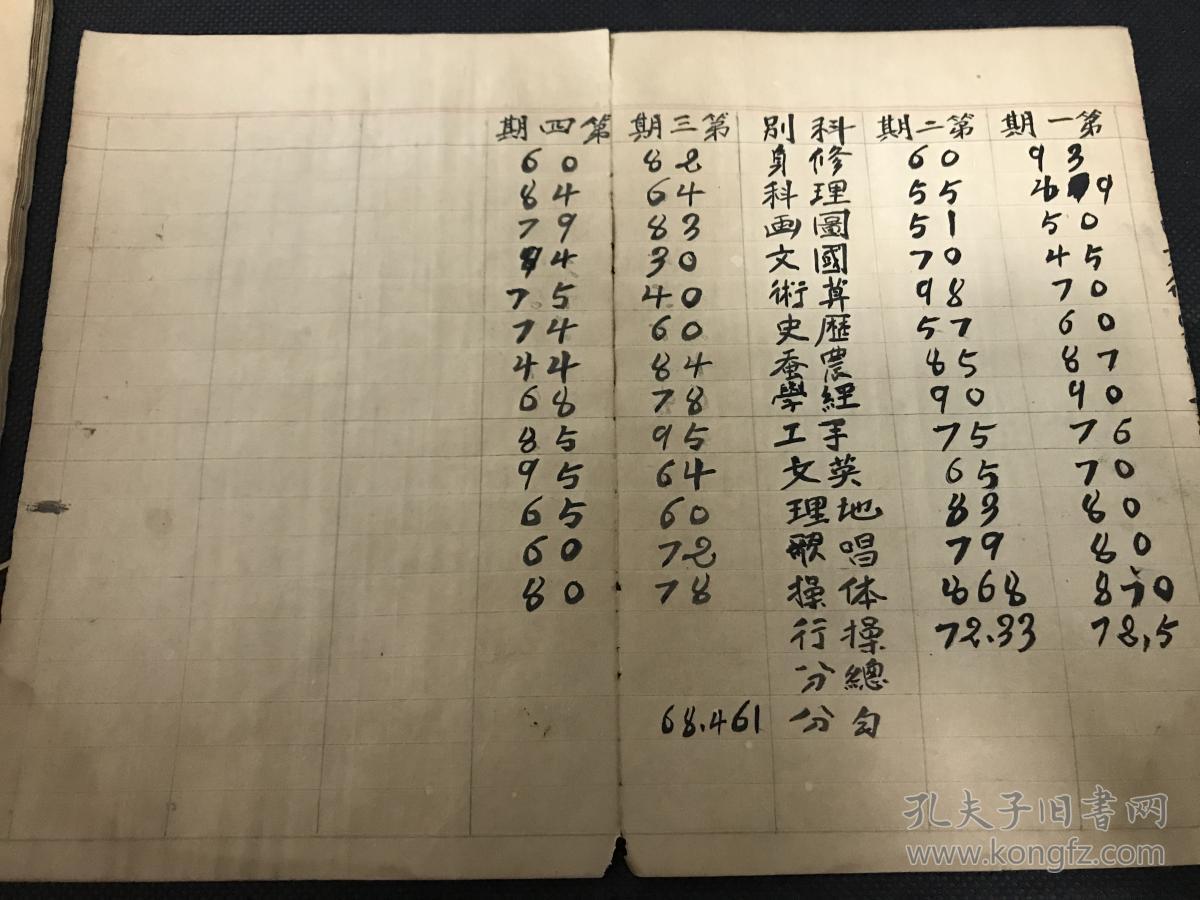 第一期 第二期 科別 第三期 第四期
93 60 修身 82 60
55 理科 64 84
50 51 圖画 83 79
45 70 國文 30
70 98 算術 40 75
60 57 歷史 60 74
87 85 農蚕 84 44
90 90 經學 78 68
76 75 手工 95 85
70 65 英文 64 95
80 83 地理 60 65
80 79 唱歌 72 60
870 868 体操 78 80
72,5 72.33 操行
總分
匀分 68.461
孔夫子旧书网
www.kongfz.com